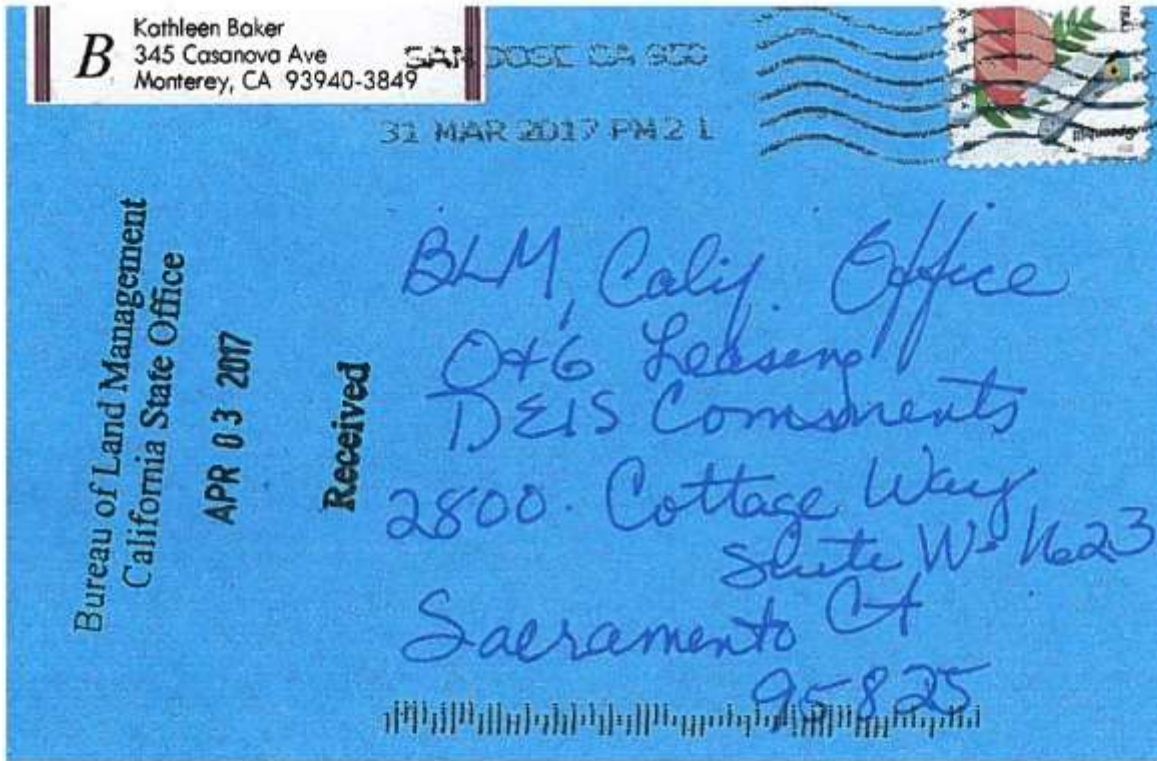 B
Kathleen Baker
345 Casanova Ave
Monterey, CA 93940-3849
SAN JOSE CA 950
31 MAR 2017 PM 2 L
Bureau of Land Management
California State Office
APR 03 2017
Received
BLM, Calif. Office
O+G Leasing
DEIS Comments
2800. Cottage Way
Suite W-1623
Sacramento CA
95825